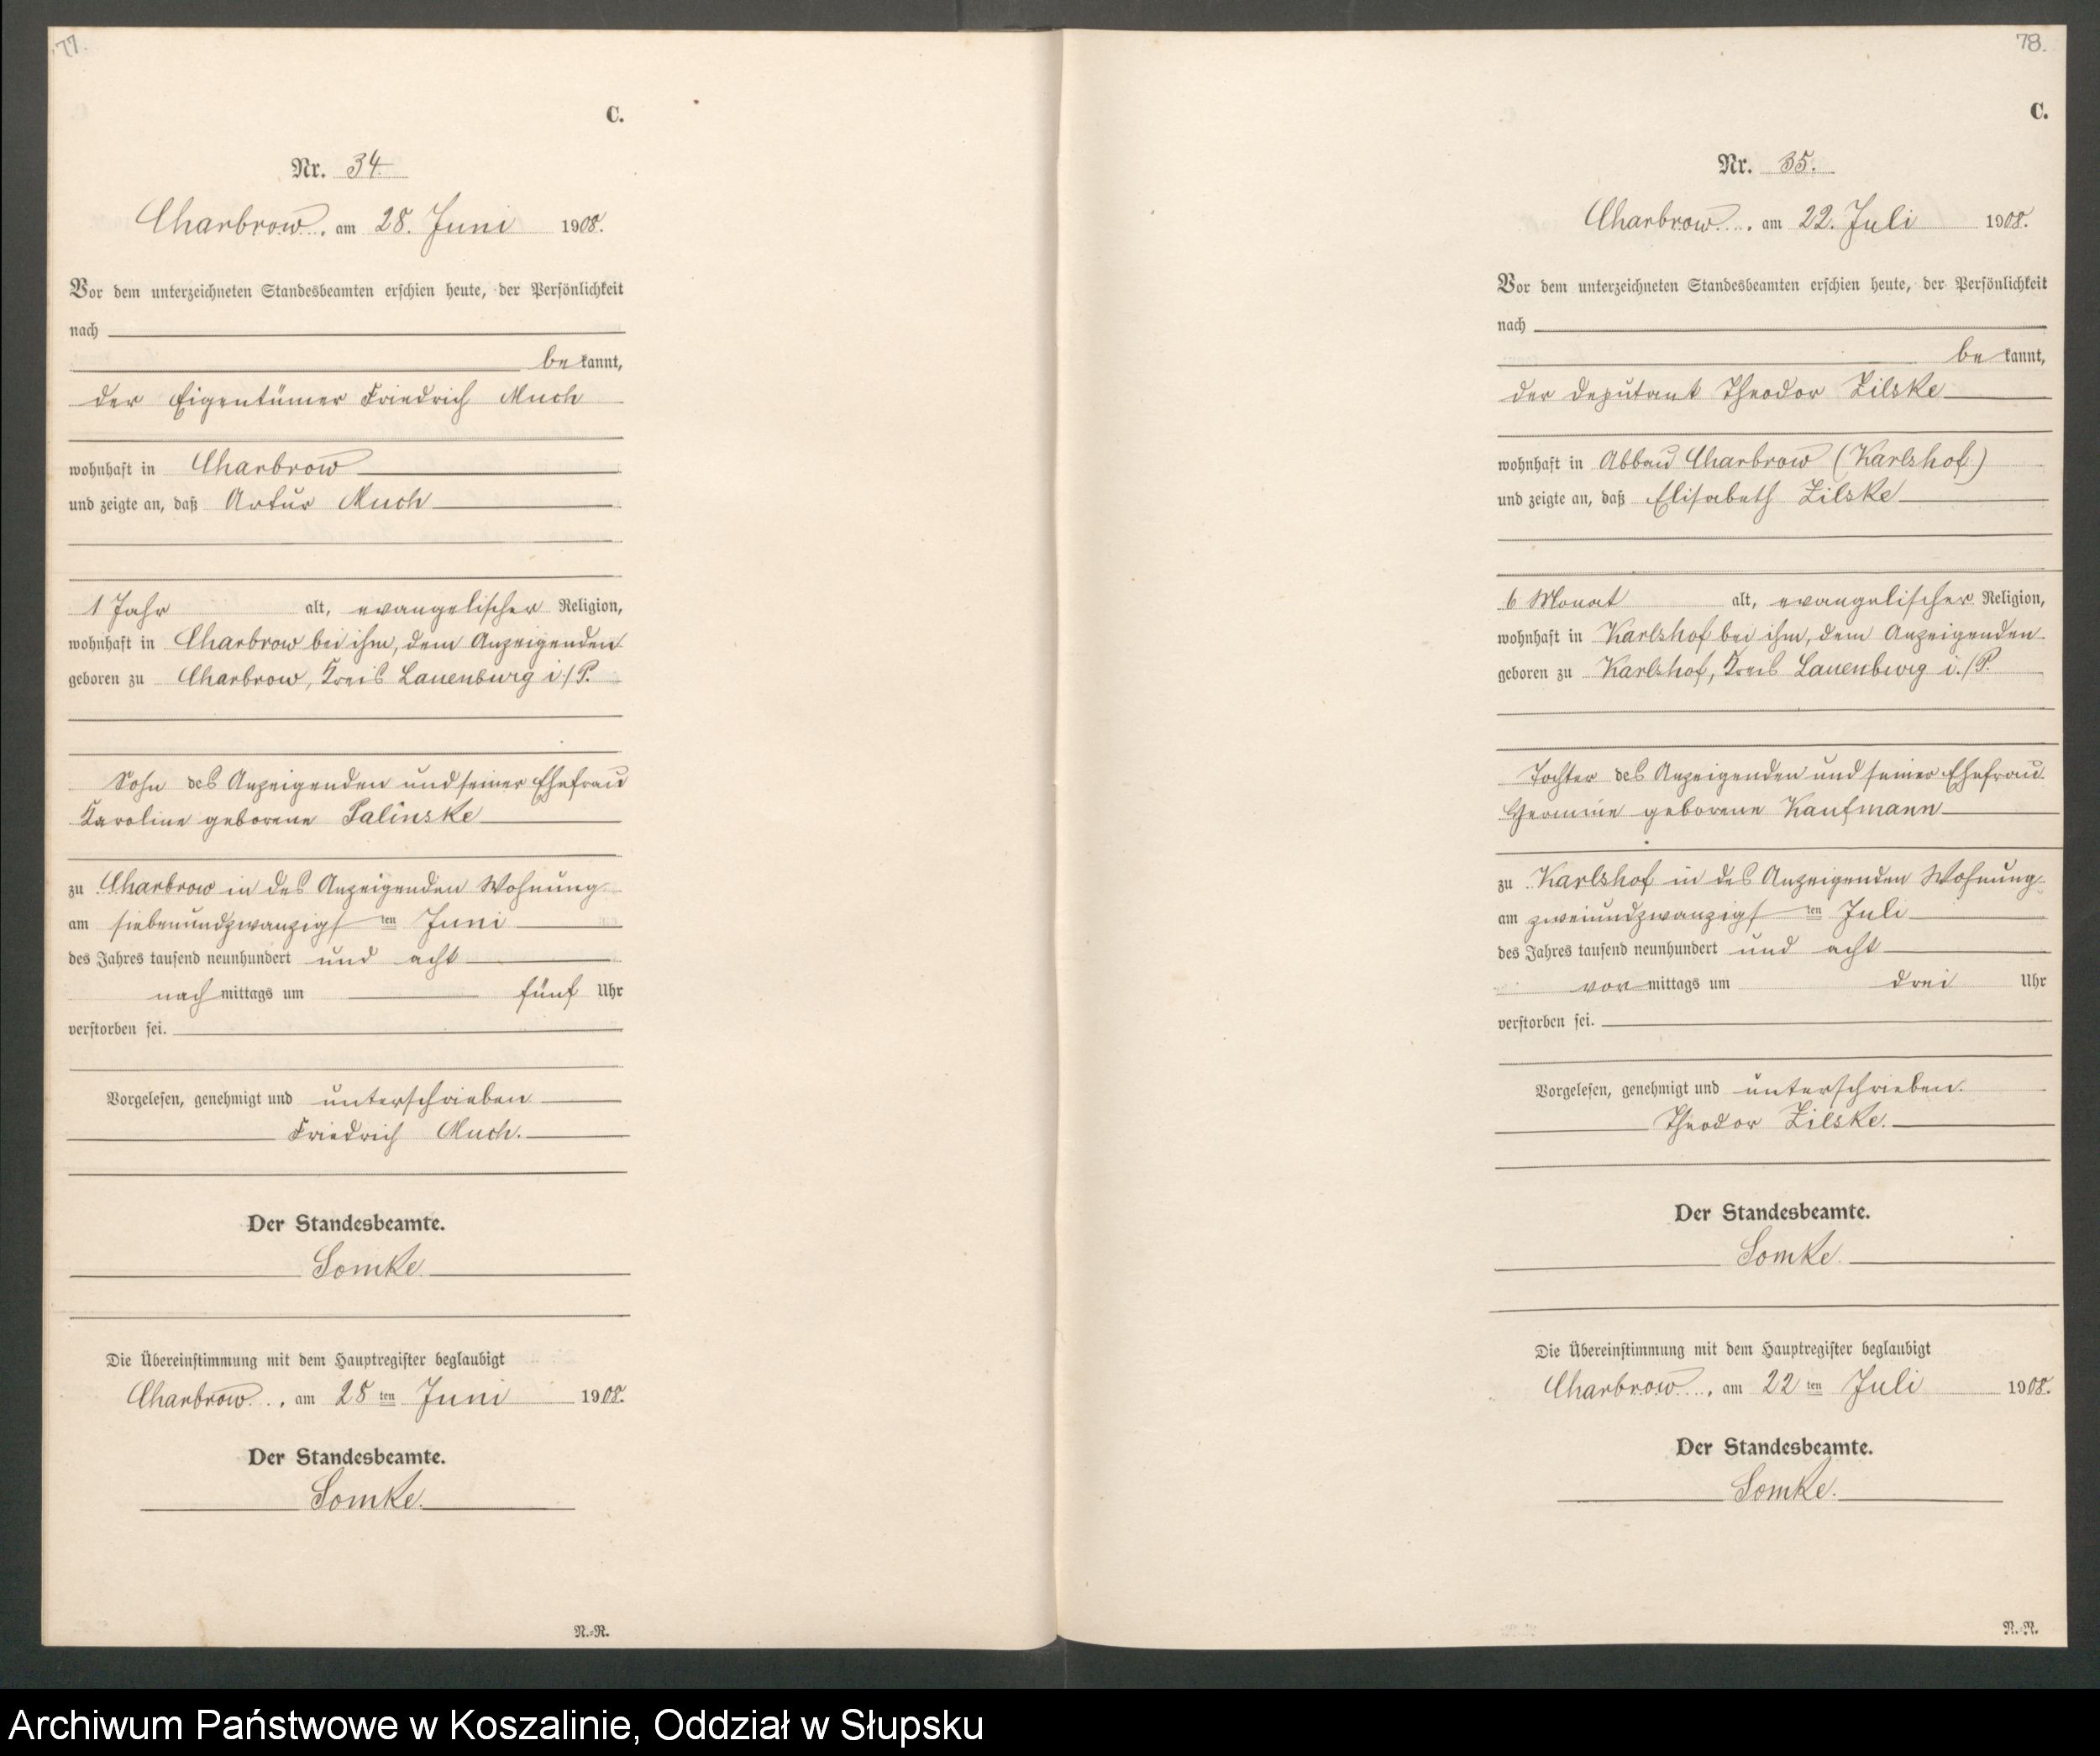 77.
C.
Nr. 34.
Charbrow, am 28. Juni 1908.
Vor dem unterzeichneten Standesbeamten erschien heute, der Persönlichkeit
nach
be kannt,
der Eigentümer Friedrich Much
wohnhaft in Charbrow
und zeigte an, daß Artur Much
1 Jahr alt, evangelischer Religion,
wohnhaft in Charbrow bei ihm, dem Anzeigenden
geboren zu Charbrow, Kreis Lauenburg i/P.
Sohn des Anzeigenden und seiner Ehefrau
Karoline geborene Palinske
zu Charbrow in des Anzeigenden Wohnung
am siebenundzwanzigsten Juni
des Jahres tausend neunhundert und acht
nach mittags um fünf Uhr
verstorben sei.
Vorgelesen, genehmigt und unterschrieben
Friedrich Much.
Der Standesbeamte.
Somke.
Die Übereinstimmung mit dem Hauptregister beglaubigt
Charbrow, am 28 ten Juni 1908.
Der Standesbeamte.
Somke.
N.-R.
78.
C.
Nr. 35.
Charbrow, am 22. Juli 1908.
Vor dem unterzeichneten Standesbeamten erschien heute, der Persönlichkeit
nach
be kannt,
der Deputant Theodor Zilske
wohnhaft in Abbau Charbrow (Karlshof)
und zeigte an, daß Elisabeth Zilske
6 Monat alt, evangelischer Religion,
wohnhaft in Karlshof bei ihm, dem Anzeigenden
geboren zu Karlshof, Kreis Lauenburg i./P.
Tochter des Anzeigenden und seiner Ehefrau
Hermine geborene Kaufmann
zu Karlshof in des Anzeigenden Wohnung
am zweiundzwanzigsten Juli
des Jahres tausend neunhundert und acht
vor mittags um drei Uhr
verstorben sei.
Vorgelesen, genehmigt und unterschrieben.
Theodor Zilske.
Der Standesbeamte.
Somke.
Die Übereinstimmung mit dem Hauptregister beglaubigt
Charbrow, am 22 ten Juli 1908.
Der Standesbeamte.
Somke.
N.-R.
Archiwum Państwowe w Koszalinie, Oddział w Słupsku